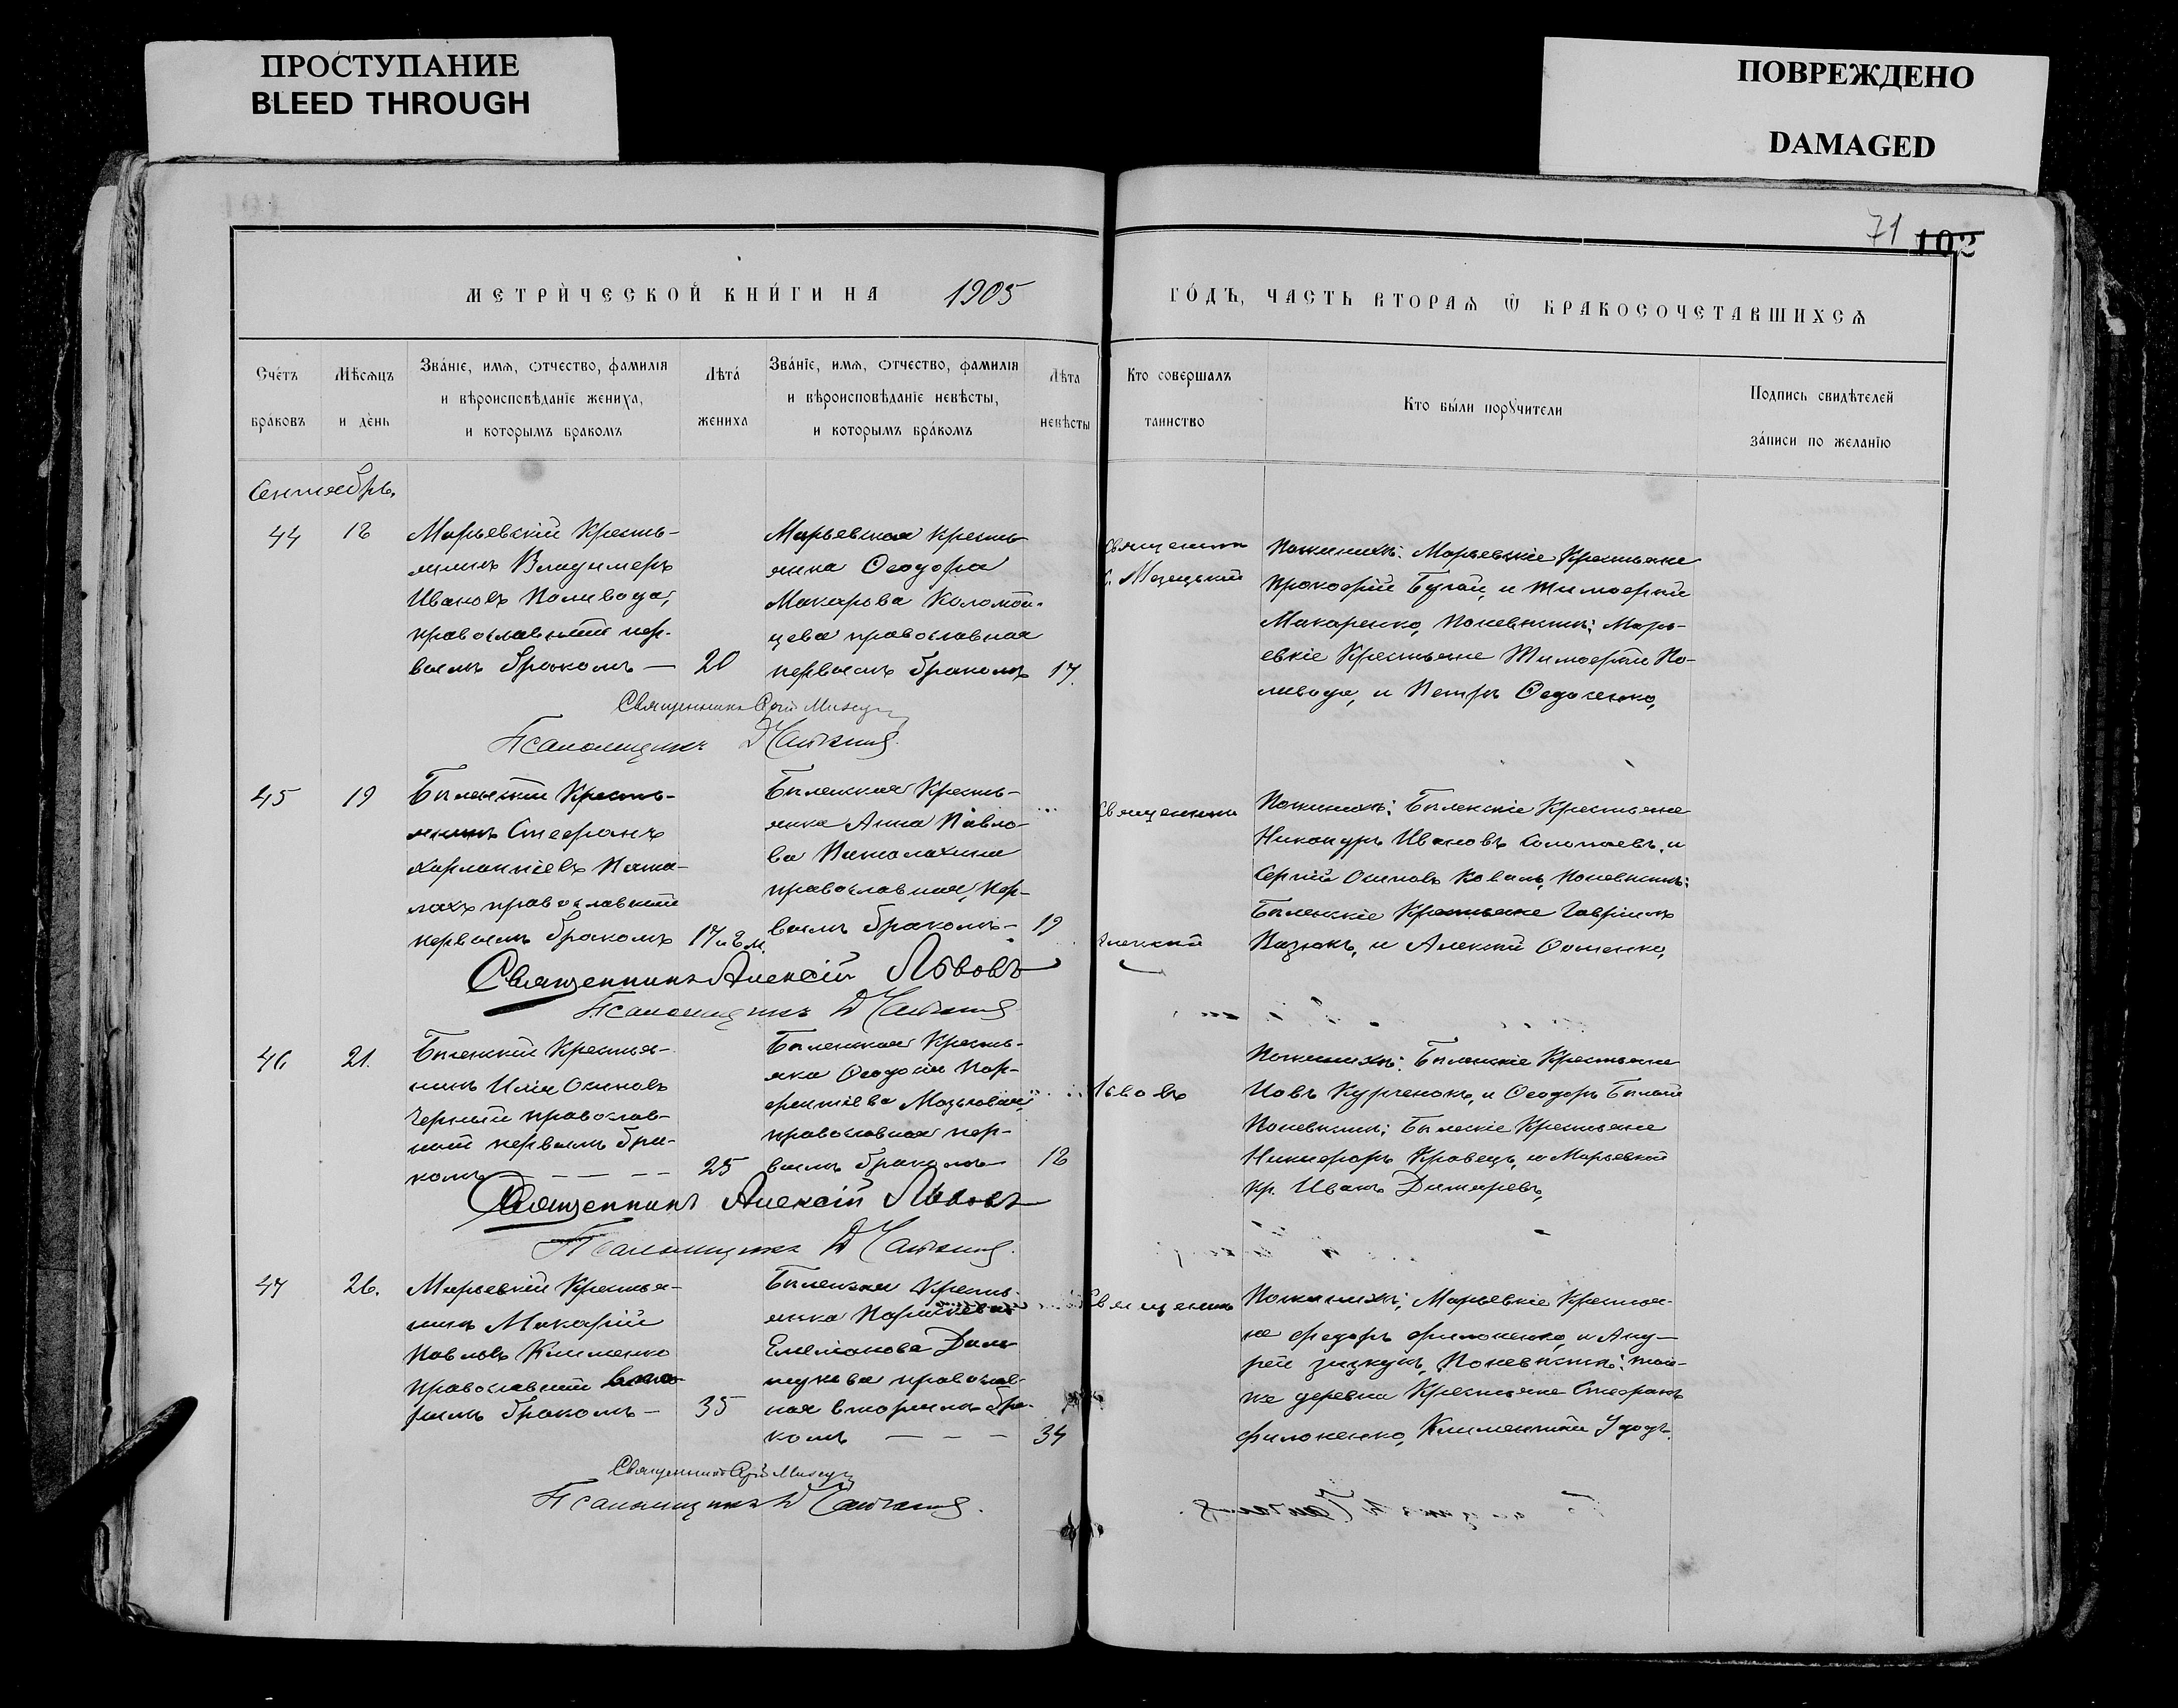 ПРОСТУПАНИЕ
BLEED THROUGH
ПОВРЕЖДЕНО
DAMAGED
71 102
МЕТРИ́ЧЕСКОЙ КНИ́ГИ НА 1905
ГО́ДЪ, ЧАСТЬ ВТОРАѦ Ѿ БРАКОСОЧЕТАВШИХСѦ
Сче́тъ
бра́ковъ
Мѣсѧцъ
и де́нь
Зва́нїе, имѧ, ѻтчество, фамилїѧ
и вѣроисповѣданїе жениха,
и которымъ бракомъ
Лѣта́
жениха
Зва́нїе, имѧ, ѻтчество, фамилїѧ
и вѣроисповѣданїе невѣсты,
и которымъ бра́комъ
Лѣта
невѣсты
Кто совершалъ
таинство
Кто бы́ли порꙋчители
Подпись свидѣтелей
за́писи по желанїю
Сентябрь.
44
18
Марьевскій Кресть-
янинъ Владимеръ
Ивановъ Поливода,
православный пер-
вымъ бракомъ — 20
Марьевская Кресть-
янка Ѳеодора
Макарова Коломой-
цева православная
первымъ бракомъ 17.
Священникъ
Поженихѣ: Марьевскіе Крестьяне
Прокофій Бугай, и Тимофей
Макаренко, Поневѣстѣ: Марь-
евкіе Крестьяне Тимофей По-
ливода, и Петръ
Священникъ
Псаломщикъ
45
19
Бѣленькій Кресть-
янинъ Стефанъ
Харлампіевъ
православный
первымъ бракомъ 17
Бѣленская Кресть-
янка Анна Павло-
ва
православная, пер-
вымъ бракомъ — 19
Священникъ
Алексій
Поженихѣ: Бѣленскіе Крестьяне
Никандръ Ивановъ и
Сергій Осиповъ Коваль, Поневѣстѣ:
Бѣленкіе Крестьяне Гавріилъ
и Алексій
Священникъ Алексій Львовъ
Псаломщикъ
46
21.
Бѣленкій Крестья-
нинъ Илія Осиповъ
Черный православ-
ный первымъ бра-
комъ — — — 25
Бѣленкая Кресть-
янка Ѳеодосія Пар-
фентіева
православная пер-
вымъ бракомъ 18
Львовъ
Поженихѣ: Бѣленскіе Крестьяне
Іовъ Курченокъ, и Ѳеодоръ Бѣлый
Поневѣстѣ: Крестьяне
Никифоръ Кравецъ, и Марьевской
кр. Иванъ
Священникъ Алексій Львовъ
Псаломщикъ
47
26.
Марьевкій Крестья-
нинъ Макарій
Павловъ Клименко
православный вто-
рымъ бракомъ — 35
Бѣленкая Кресть-
янка
Емеліанова
православ-
ная вторымъ бра-
комъ — — — 34
Священникъ
Поженихѣ; Марьевкіе Крестья-
не Федоръ Филоненко, и Анд-
рей Поневѣстѣ: той-
же деревни Крестьяне Стефанъ
Филоненко, Климентій Удодъ.
Священникъ
Псаломщикъ